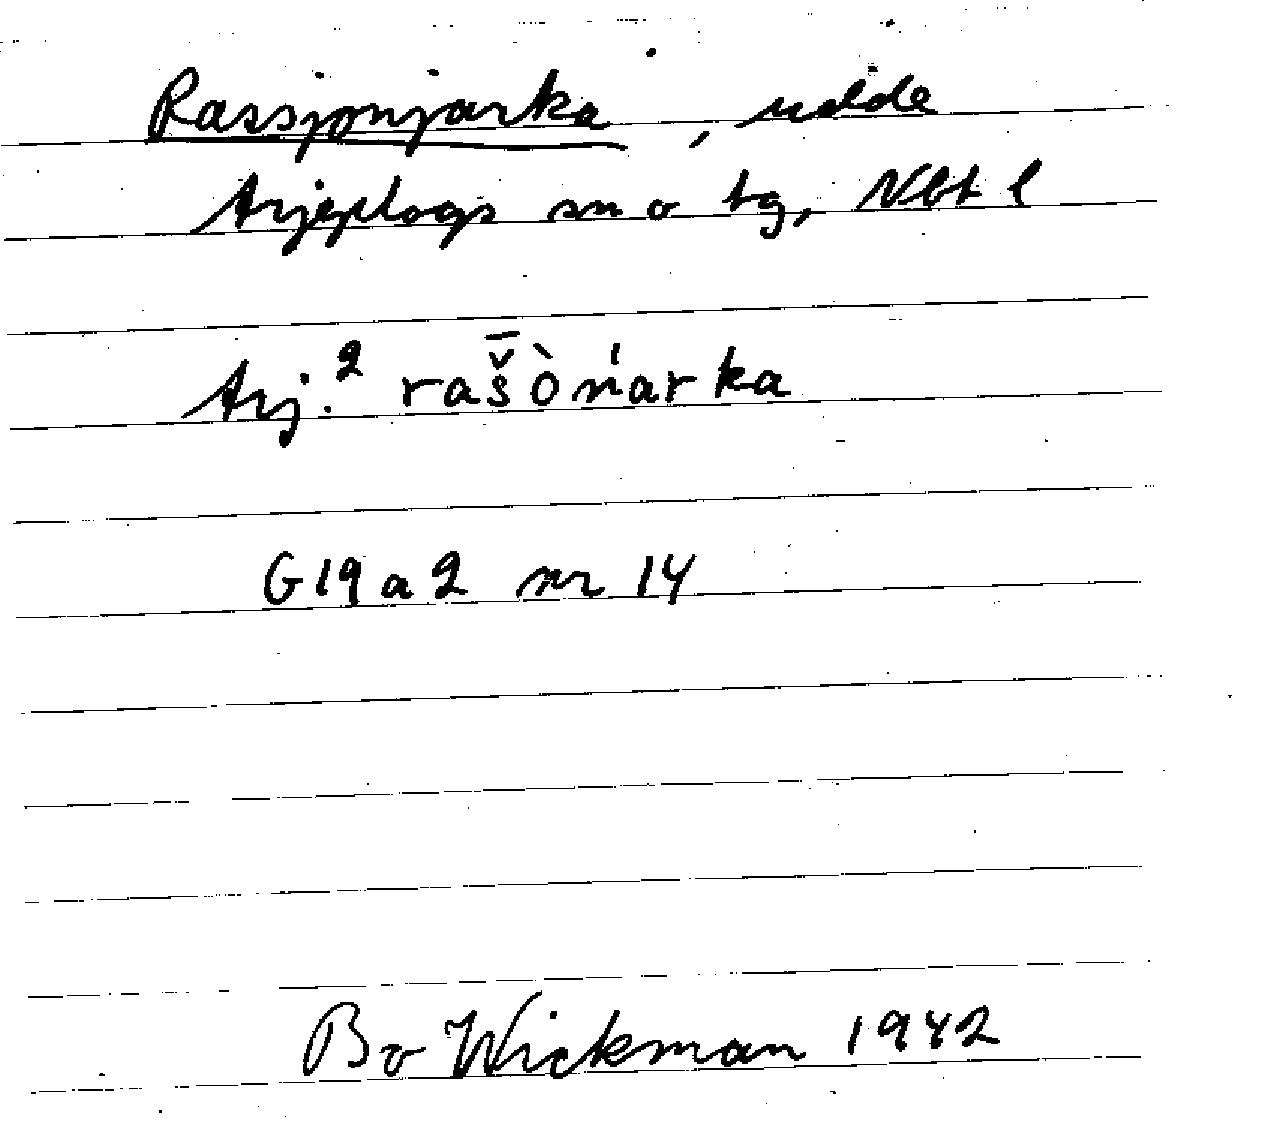 Rassjonjarka, udde
Arjeplogs sn o tg, Nbt l
Arj.² raš̄òńarka
G19a2 nr 14
Bo Wickman 1942